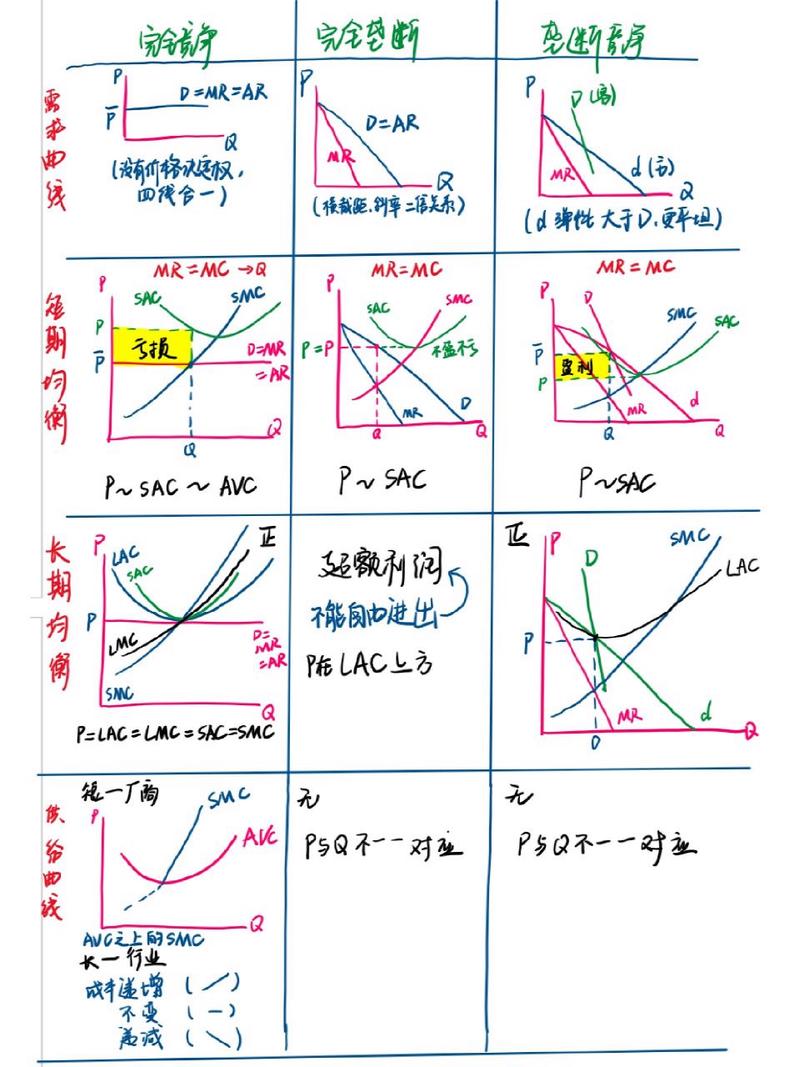 完全竞争
完全垄断
垄断竞争
需求曲线
P
P̅
D=MR=AR
Q
(没有价格决定权,
四线合一)
P
D=AR
MR
Q
(横截距,斜率二倍关系)
P
D
d
MR
Q
(d弹性大于D,更平坦)
短期均衡
MR=MC→Q
P
SAC
SMC
P
亏损
P̅
D=MR
=AR
Q
Q
P~SAC~AVC
MR=MC
P
SAC
SMC
P=P
不盈不亏
MR
D
Q
Q
P~SAC
MR=MC
P
D
SMC
SAC
P̅
盈利
P
MR
d
Q
Q
P~SAC
长期均衡
P
正
LAC
SAC
P
LMC
D=
MR
=AR
SMC
Q
P=LAC=LMC=SAC=SMC
超额利润
不能自由进出
P在LAC上方
正
P
SMC
D
LAC
P
MR
d
Q
Q
供给曲线
短一厂商
P
SMC
AVC
Q
AVC之上的SMC
长一行业
成本递增(／)
不变(—)
递减(＼)
无
P与Q不一一对应
无
P与Q不一一对应